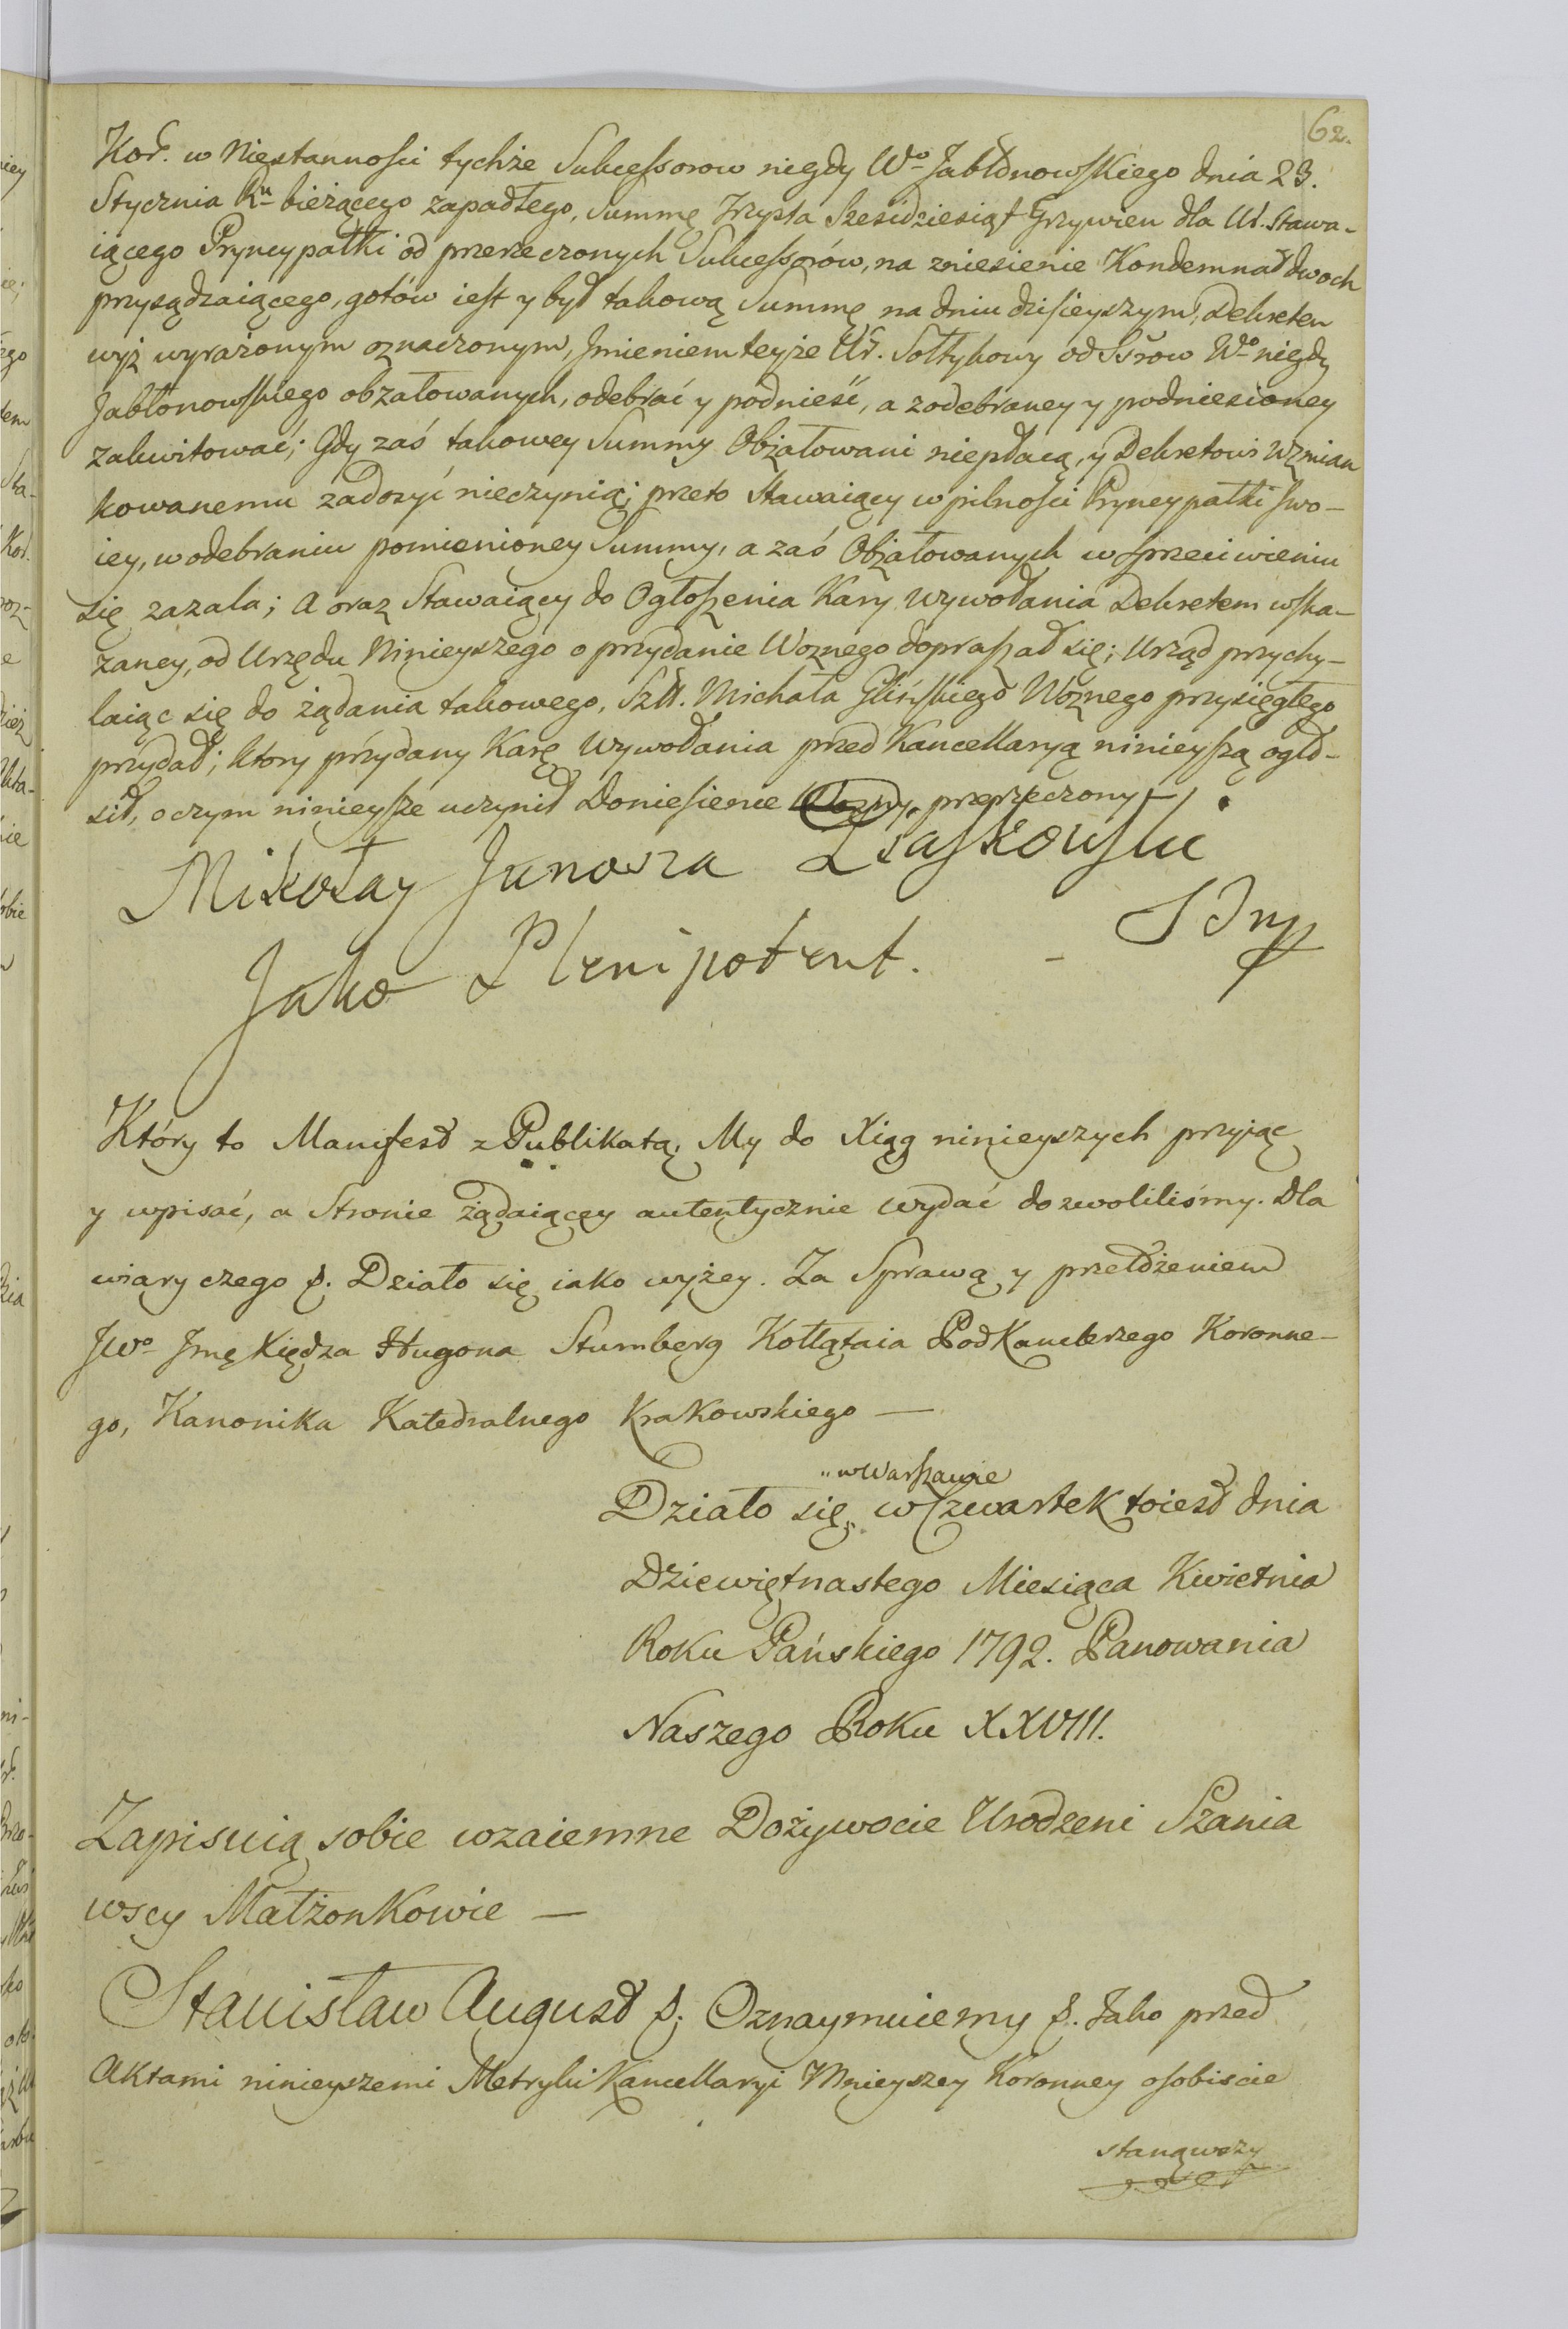 62.
Kor. w Niestannosci tychże Sukcessorow niegdy Wo Jabłonowskiego dnia 23.
Stycznia Ru bieżącego zapadłego, Summę Trzysta Szesidziesiąt Grzywien dla Ur. stawa-
iącego Pryncypałki od przerzeczonych Sukcessorów, na zniesienie Kondemnat dwoch
przysądzaiącego, gotów iest y był takową Summę na dniu dzisieyszym, Dekretem
wyż wyrażonym oznaczonym, Jmieniem teyże Ur. Sołtykowy od Ssrow Wo niegdy
Jabłonowskiego obżałowanych, odebrać y podnieść, a z odebraney y podniesioney
zakwitować; Gdy zaś takowey Summy Obżałowani niepłacą, y Dekretowi Wzmian
kowanemu zadosyć nieczynią; przeto Stawaiący w pilnosci Pryncypałki swo-
iey, w odebraniu pomienioney Summy, a zaś Obżałowanych w sprzeciwieniu
się zazala; A oraz Stawaiący do Ogłoszenia Kary Wywołania Dekretem wska-
zaney, od Urzędu Ninieyszego o przydanie Woznego dopraszał się; Urząd przychy-
laiąc się do żądania takowego, Szl. Michała Glińskiego Woznego przysięgłego
przydał; ktory przydany Karę Wywołania przed Kancellaryą ninieyszą ogło-
sił, o czym ninieysze uczynił Doniesienie przerzeczony.
Mikołay Junosza Piaskowski
Jako Plenipotent. -
Który to Manifest z Publikatą, My do Xiąg ninieyszych przyjąć
y wpisać, a Stronie żądaiącey autentycznie wydać dozwoliliśmy. Dla
wiary czego p. Działo się iako wyżey. Za Sprawą y przełożeniem
JWo Jmę Xiędza Hugona Stumberg Kołłątaia PodKanclerzego Koronne-
go, Kanonika Katedralnego Krakowskiego —
" w Warszawie
Działo się w Czwartek toiest dnia
Dziewiętnastego Miesiąca Kwietnia
Roku Pańskiego 1792. Panowania
Naszego Roku XXVIII.
Zapisuią sobie wzaiemne Dożywocie Urodzeni Szania
wscy Małżonkowie —
Stanisław August p. Oznaymuiemy p. Jako przed
Aktami ninieyszemi Metryki Kancellaryi Mnieyszey Koronney osobiscie
stanąwszy